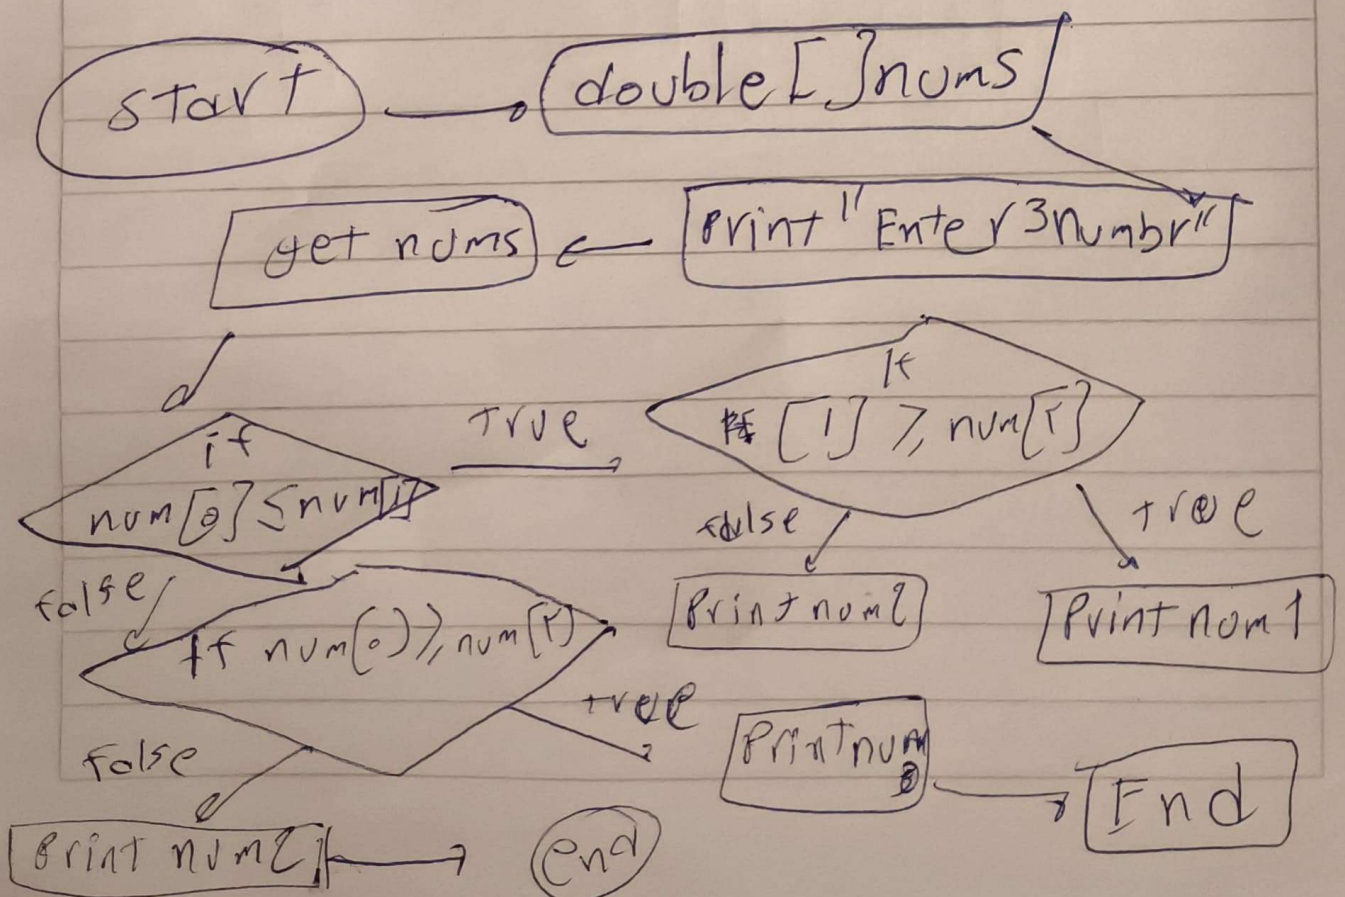 start
double[]nums
Print "Enter 3numbr"
get nums
if
num[0]≤num[1]
true
If
[1] ≥ num[٢]
false
true
Print num2
Print num1
false
If num(0)≥num[٢]
true
false
Print num
End
Print num2
end